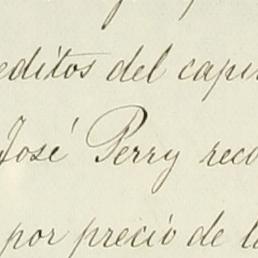 editos del capi
José Perry reco
por precio de la